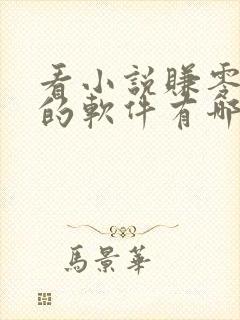 看小説賺零
的軟件有哪
馬景華